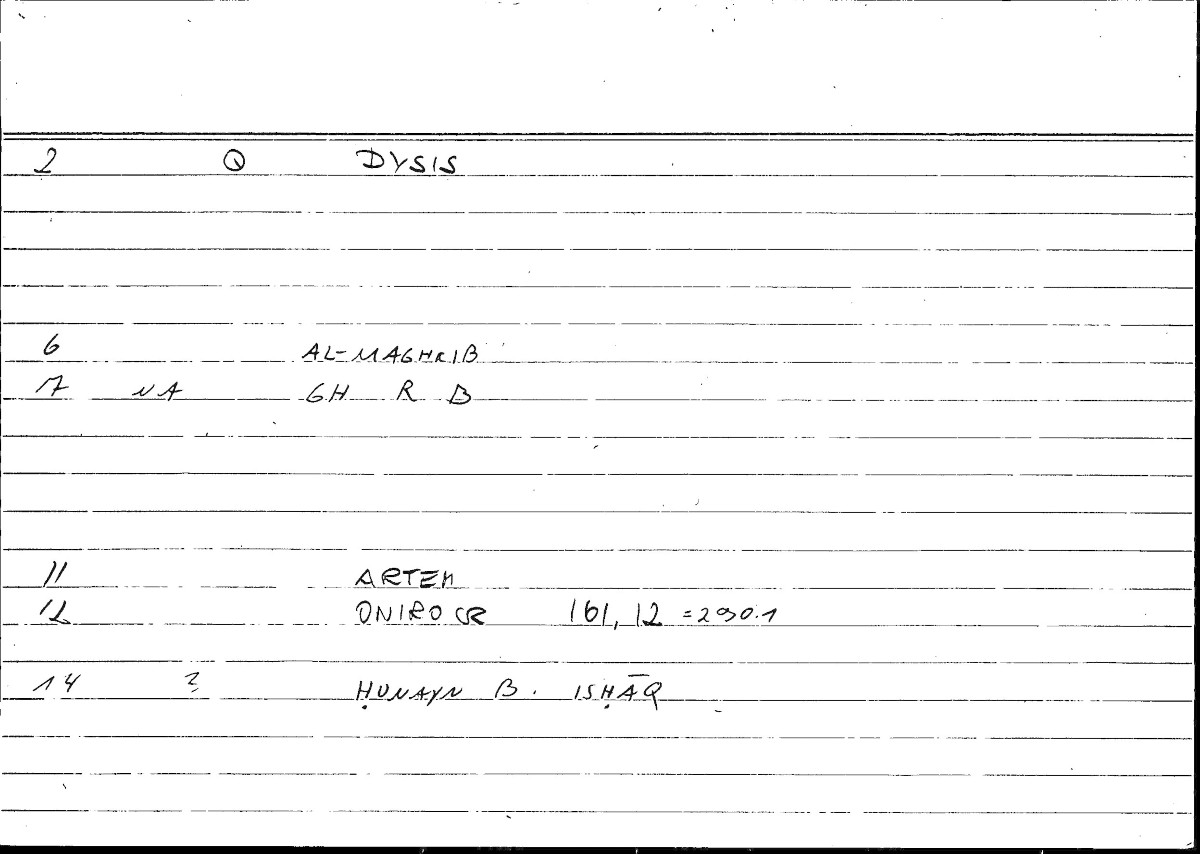 2 Q DYSIS
6 AL-MAGHRIB
7 NA GH R B
11 ARTEM
12 ONIROCR 161,12 =290.1
14 ? ḤUNAYN B. ISḤĀQ